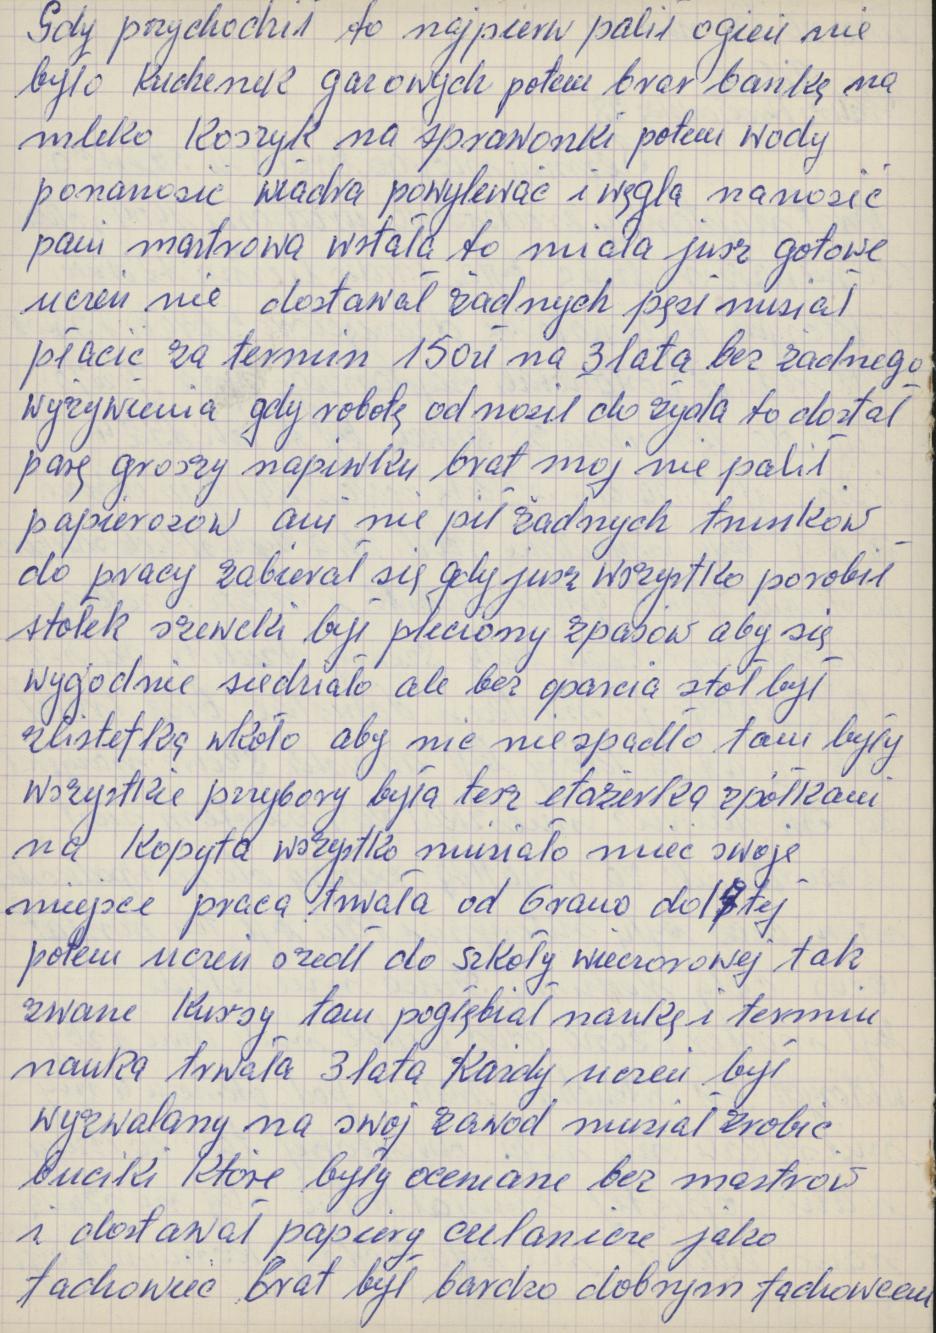 Gdy przychodził to najpierw palił ogień nie
było kuchenek gazowych potem brał bańkę na
mleko koszyk na sprawonki potem wody
ponanosić wiadra powylewać i węgla nanosić
pani mastrowa wstała to miała jusz gotowe
uczeń nie dostawał żadnych pęsi musiał
płacić za termin 150zł na 3 lata bez żadnego
wyżywienia gdy robotę odnosił do żyda to dostał
parę groszy napiwku brat moj nie palił
papierosow ani nie pił żadnych trunkow
do pracy zabierał się gdy jusz wszystko porobił
stołek szewcki był pleciony zpasow aby się
wygodnie siedziało ale bez oparcia stoł był
zlistefką wkoło aby nic niespadło tam były
wszystkie przybory była tesz etażerka zpółkami
na kopyta wszystko musiało mieć swoje
miejsce praca trwała od 6 rano do tej
potem uczeń szedł do szkoły wieczorowej tak
zwane kursy tam pogłębiał naukę i termin
nauka trwała 3 lata Każdy uczeń był
wyzwalany na swój zawod musiał zrobić
buciki które były oceniane bez mastrów
i dostawał papiery czelanicze jako
fachowiec brat był bardzo dobrym fachowcem